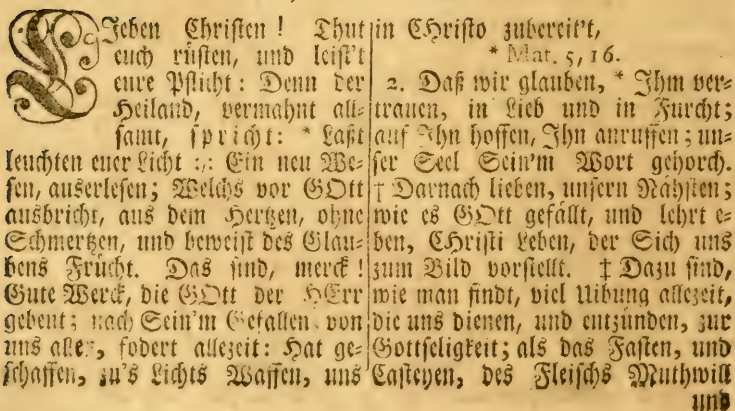 Lieben Christen ! Thut
euch rüsten, und leist't
eure Pflicht: Denn der
Heiland, vermahnt all-
samt, spricht: * Laßt
leuchten euer Licht :,: Ein neu We-
sen, auserlesen; Welchs vor GOtt
ausbricht, aus dem Hertzen, ohne
Schmertzen, und beweist des Glau-
bens Frücht. Das sind, merck !
Gute Werck, die GOtt der HErr
gebeut; nach Sein'm Gefallen von
uns allen, fodert allezeit: Hat ge-
schaffen, zu's Lichts Waffen, uns
in CHristo zubereit't,
* Mat. 5, 16.
2. Daß wir glauben, * Ihm ver-
trauen, in Lieb und in Furcht;
auf Ihn hoffen, Ihn anruffen; un-
ser Seel Sein'm Wort gehorch.
† Darnach lieben, unsern Nähsten;
wie es GOtt gefällt, und lehrt e-
ben, CHristi Leben, der Sich uns
zum Bild vorstellt. ‡ Dazu sind,
wie man findt, viel Uibung allezeit,
die uns dienen, und entzünden, zur
Gottseligkeit; als das Fasten, und
Casteyen, des Fleischs Muthwill
und